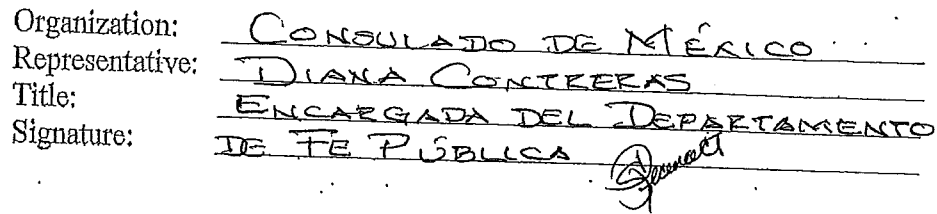 Organization: CONSULADO DE MÉXICO
Representative: DIANA CONTRERAS
Title: ENCARGADA DEL DEPARTAMENTO
Signature: DE FE PÚBLICA